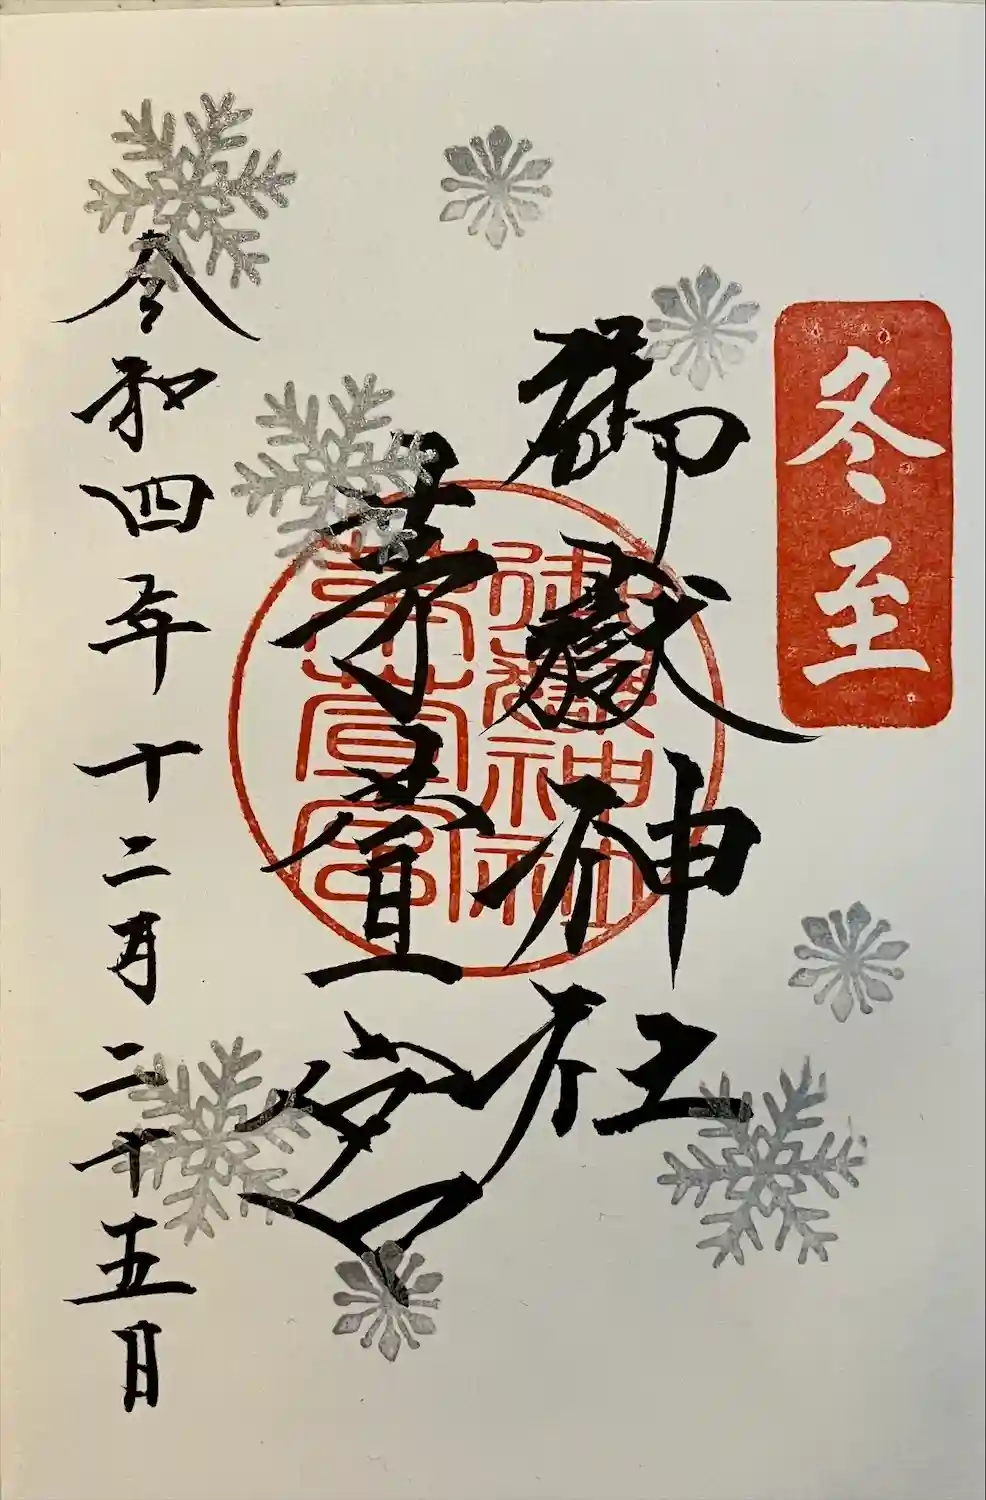 冬至
御嶽神社
茅萱宮
御嶽神社
茅萱宮
令和四年十二月二十五日